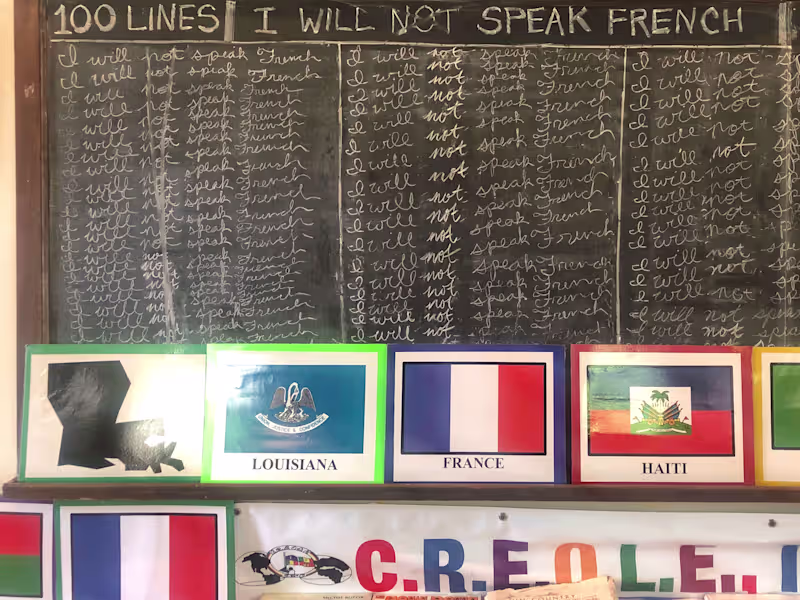 100 LINES I WILL NOT SPEAK FRENCH
I will not speak French
I will not speak French
I will not speak French
I will not speak French
I will not speak French
I will not speak French
I will not speak French
I will not speak French
I will not speak French
I will not speak French
I will not speak French
I will not speak French
I will not speak French
I will not speak French
I will not speak French
I will not speak French
I will not speak French
I will not speak French
I will not speak French
I will not speak French
I will not speak French
I will not speak French
I will not speak French
I will not speak French
I will not speak French
I will not speak French
I will not speak French
I will not speak French
I will not speak French
I will not speak French
I will not speak French
I will not speak French
I will not speak French
I will not speak French
I will not speak French
I will not speak French
I will not
I will not
I will not
I will not
I will not
I will not
I will not
I will not
I will not
I will not
I will not
I will not
I will not
I will not
UNION JUSTICE & CONFIDENCE
LOUISIANA
FRANCE
HAITI
C.R.E.O.L.E.,